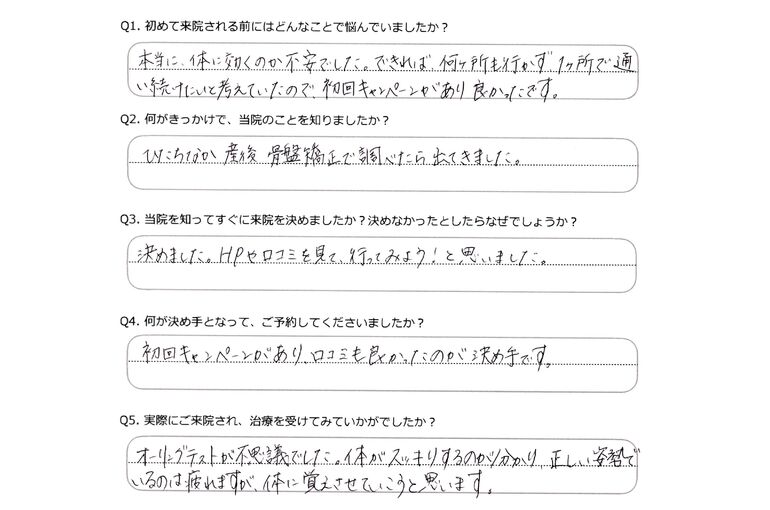 Q1. 初めて来院される前にはどんなことで悩んでいましたか？
本当に、体に効くのか不安でした。できれば、何ヶ所も行かず1ヶ所で通
い続けたいと考えていたので、初回キャンペーンがあり良かったです。
Q2. 何がきっかけで、当院のことを知りましたか？
ひたちなか 産後 骨盤矯正で調べたら出てきました。
Q3. 当院を知ってすぐに来院を決めましたか？決めなかったとしたらなぜでしょうか？
決めました。HPや口コミを見て、行ってみよう！と思いました。
Q4. 何が決め手となって、ご予約してくださいましたか？
初回キャンペーンがあり、口コミも良かったのが決め手です。
Q5. 実際にご来院され、治療を受けてみていかがでしたか？
オーリングテストが不思議でした。体がスッキリするのが分かり、正しい姿勢で
いるのは疲れますが、体に覚えさせていこうと思います。